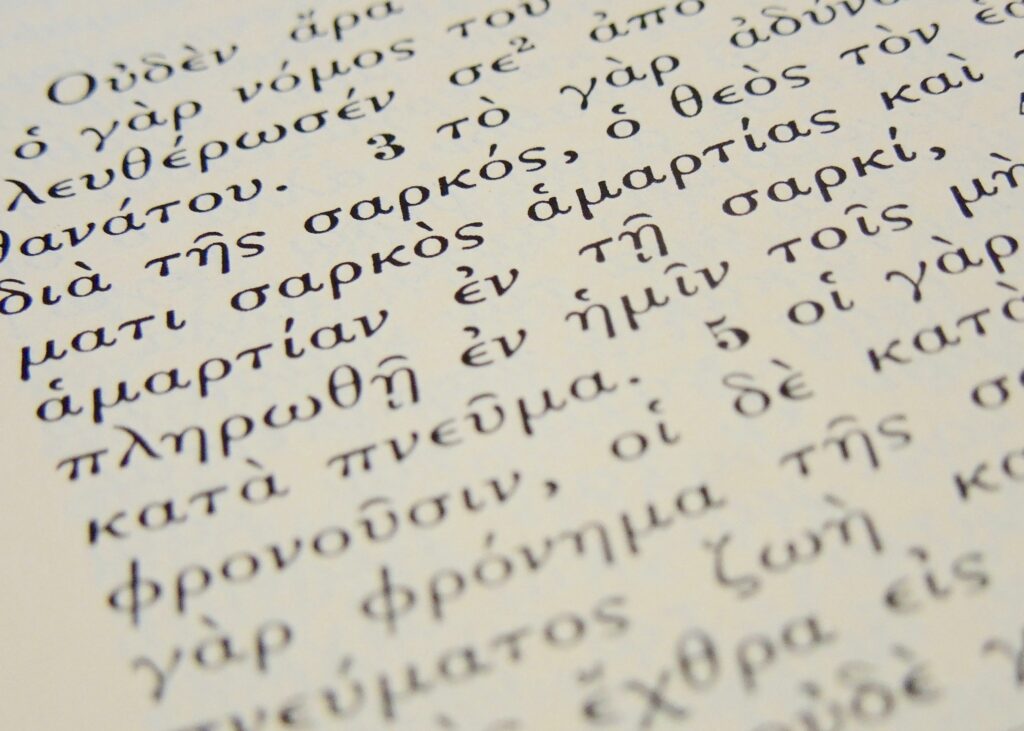 Οὐδὲν ἄρα
ὁ γὰρ νόμος του
λευθέρωσέν σε² ἀπὸ
θανάτου. 3 τὸ γὰρ ἀδύνα
διὰ τῆς σαρκός, ὁ θεὸς τὸν ἑα
ματι σαρκὸς ἁμαρτίας καὶ
ἁμαρτίαν ἐν τῇ σαρκί,
πληρωθῇ ἐν ἡμῖν τοῖς μὴ
κατὰ πνεῦμα. 5 οἱ γὰρ
φρονοῦσιν, οἱ δὲ κατὰ
γὰρ φρόνημα τῆς σα
πνεύματος ζωὴ κα
ἔχθρα εἰς
οὐδὲ